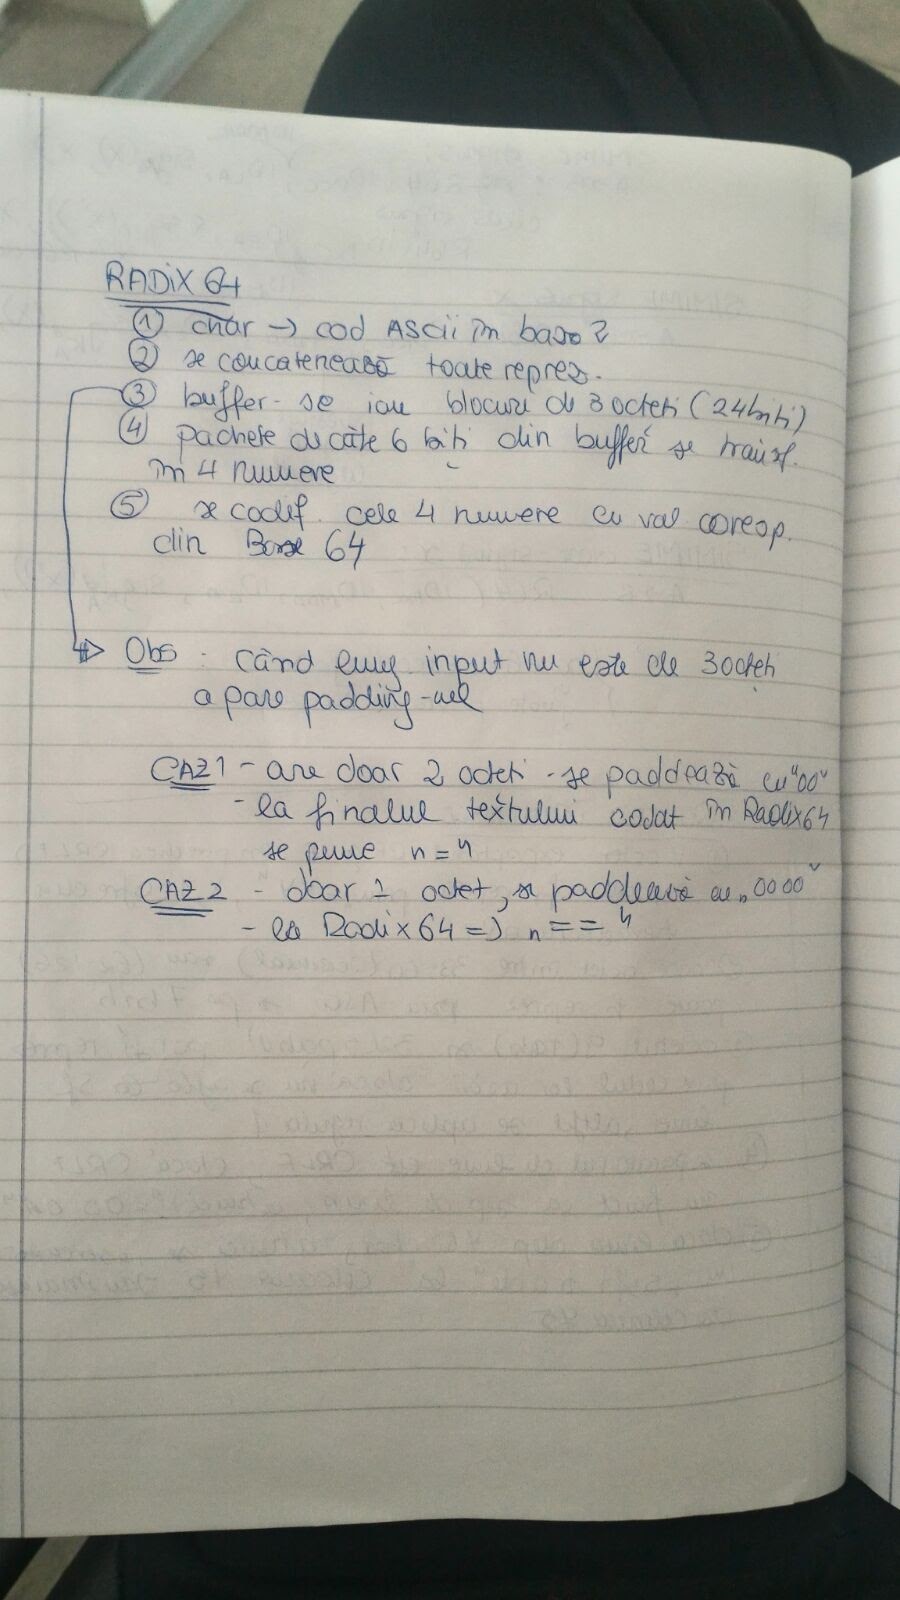 RADIX 64
① char → cod ASCII în baza 2
② se concatenează toate reprez.
③ buffer - se iau blocuri de 3 octeți (24 biți)
④ pachete de câte 6 biți din buffer se transf.
în 4 numere
⑤ se codif. cele 4 numere cu val coresp.
din Base 64
Obs : când lung input nu este de 3 octeți
apare padding-ul
CAZ 1 - are doar 2 octeți - se paddează cu "00"
- la finalul textului codat în Radix 64
se pune „="
CAZ 2 - doar 1 octet, se paddează cu „0000"
- la Radix 64 => „=="